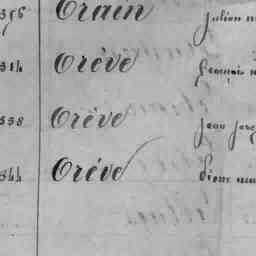 356 Orain Julien
314 Orève François
338 Orève Jean
344 Oréve Pierre